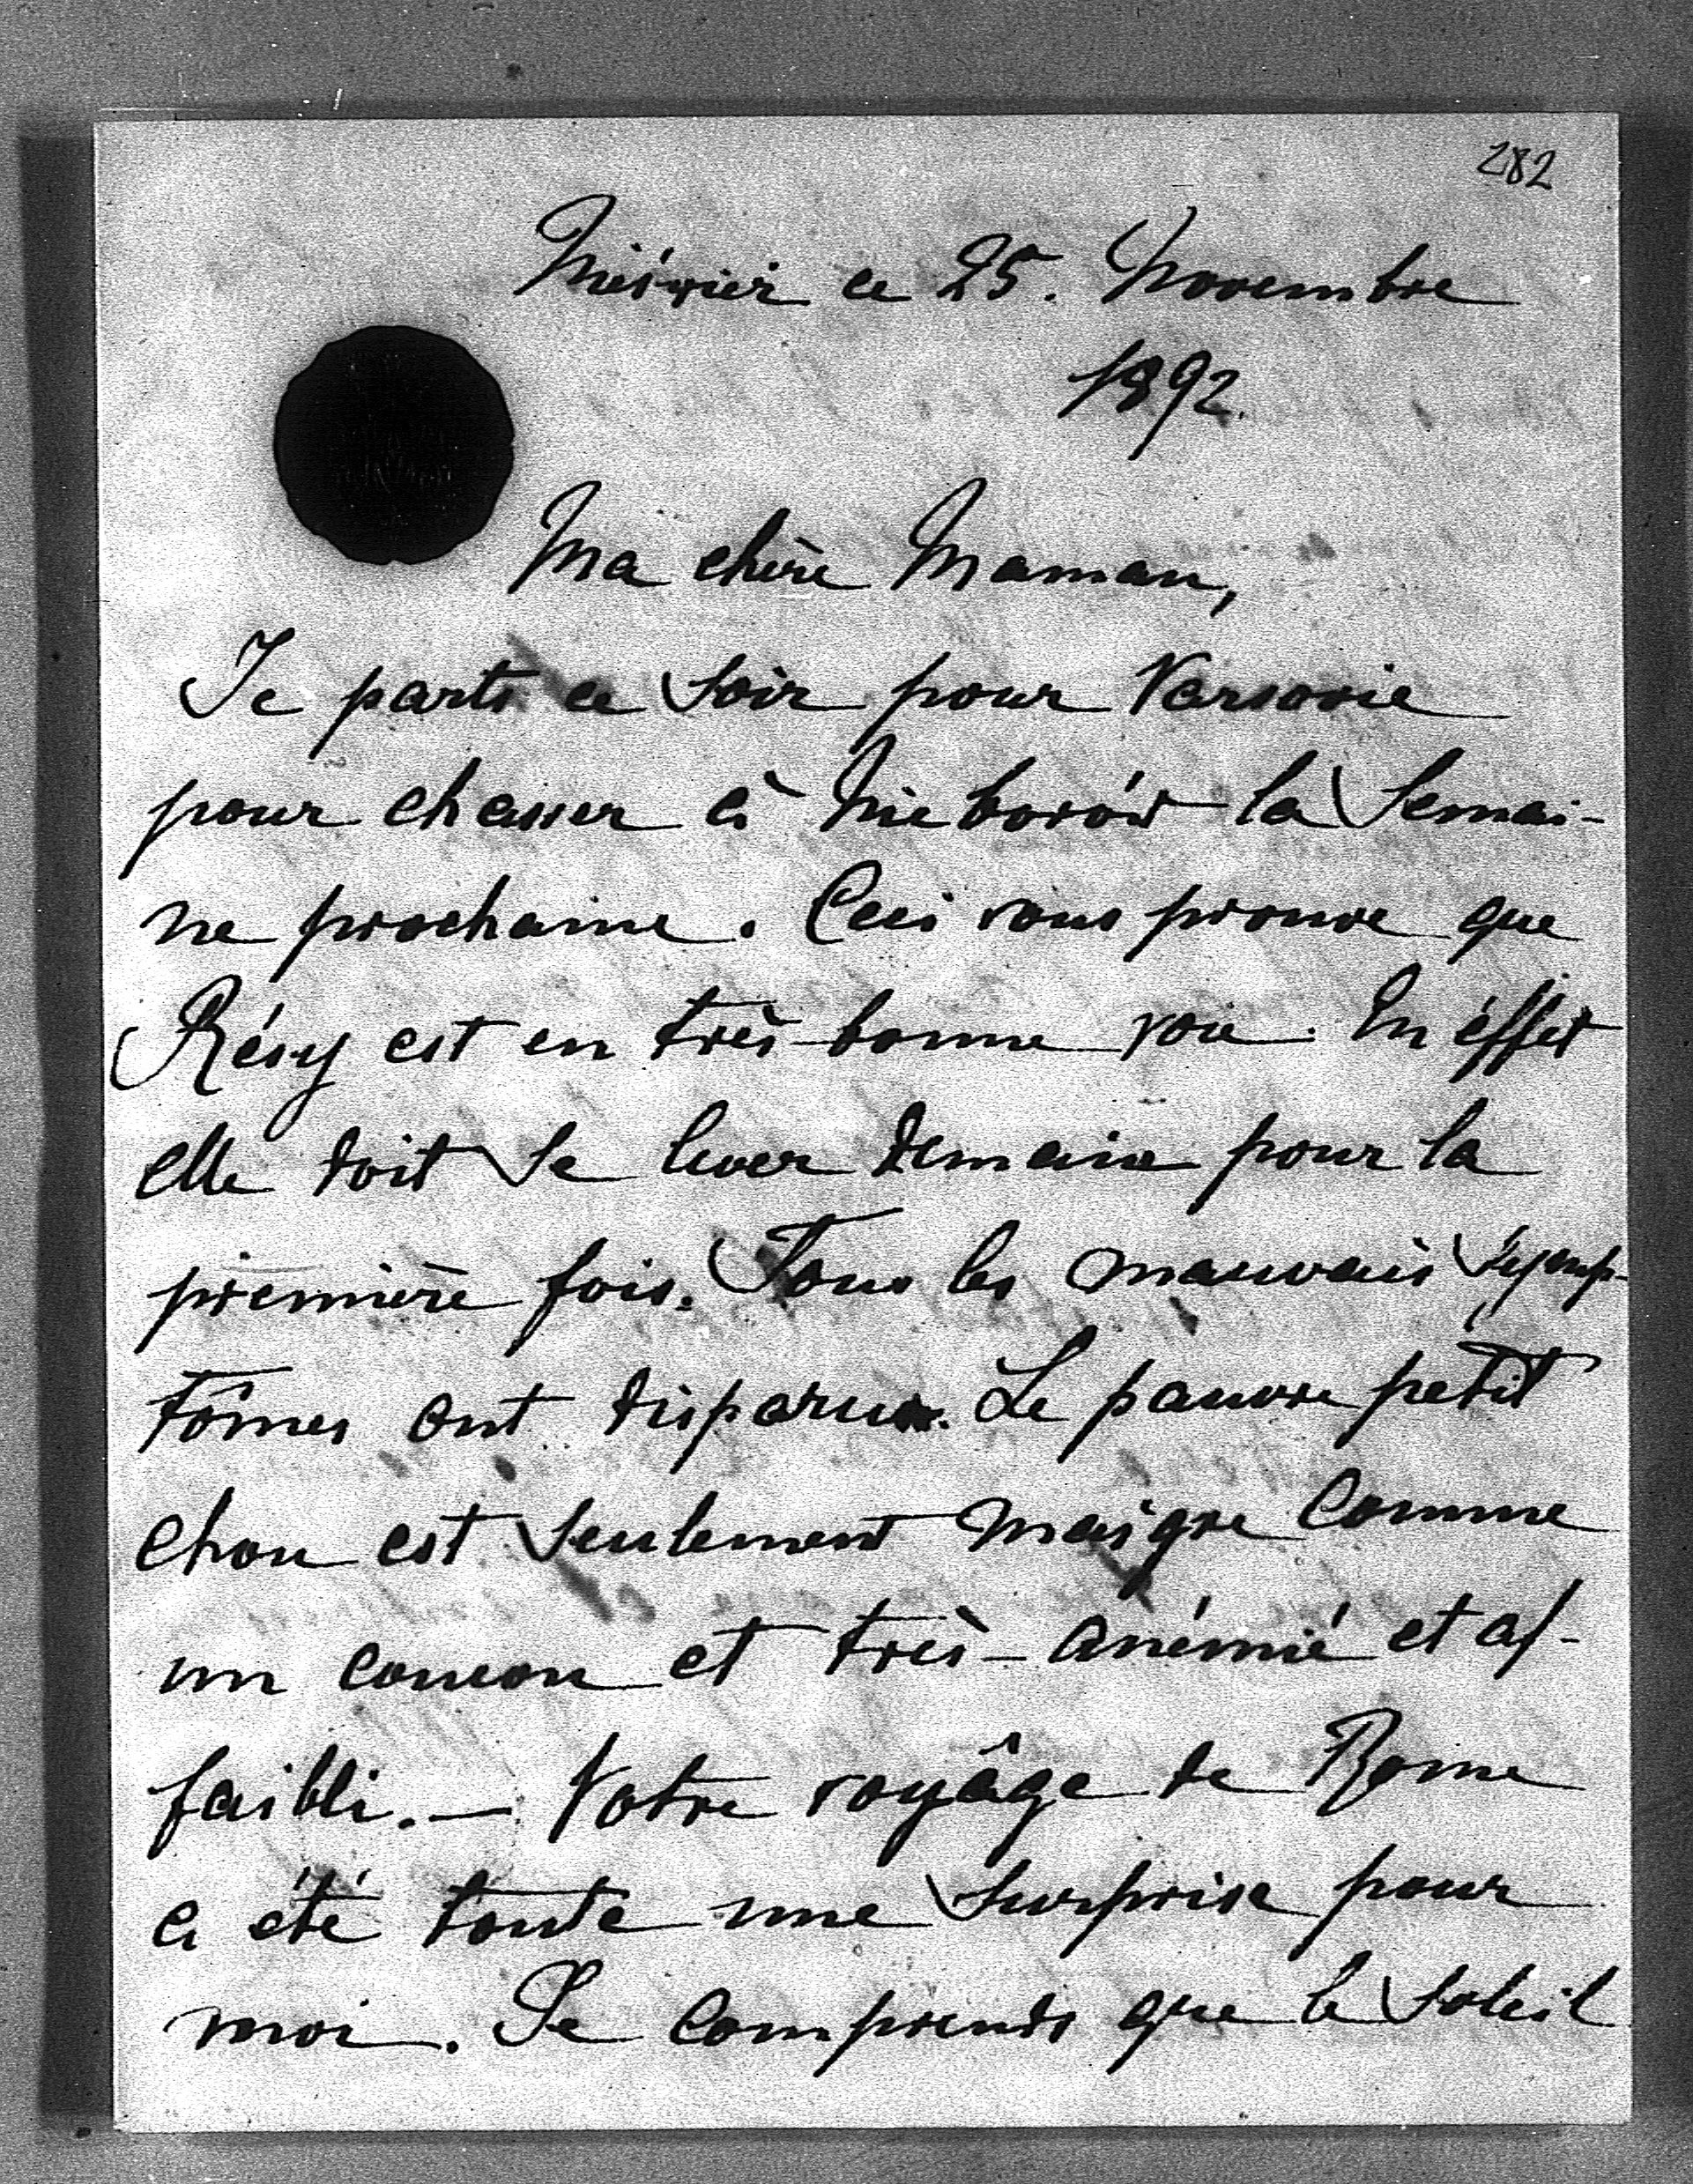 282
Niéśwież ce 25. Novembre
1892.
Ma chère Maman,
Je parts ce soir pour Varsovie
pour chasser à Nieborów la Semai-
ne prochaine. Ceci vous prouve que
Résy est en très-bonne voie. En éffet
elle doit se lever demain pour la
première fois. Tous les mauvais symp-
tômes ont disparus. Le pauvre petit
chou est seulement maigre comme
un coucou et très-anémié et af-
faibli. — Votre voyâge de Rome
a été toute une surprise pour
moi. Je comprends que le soleil